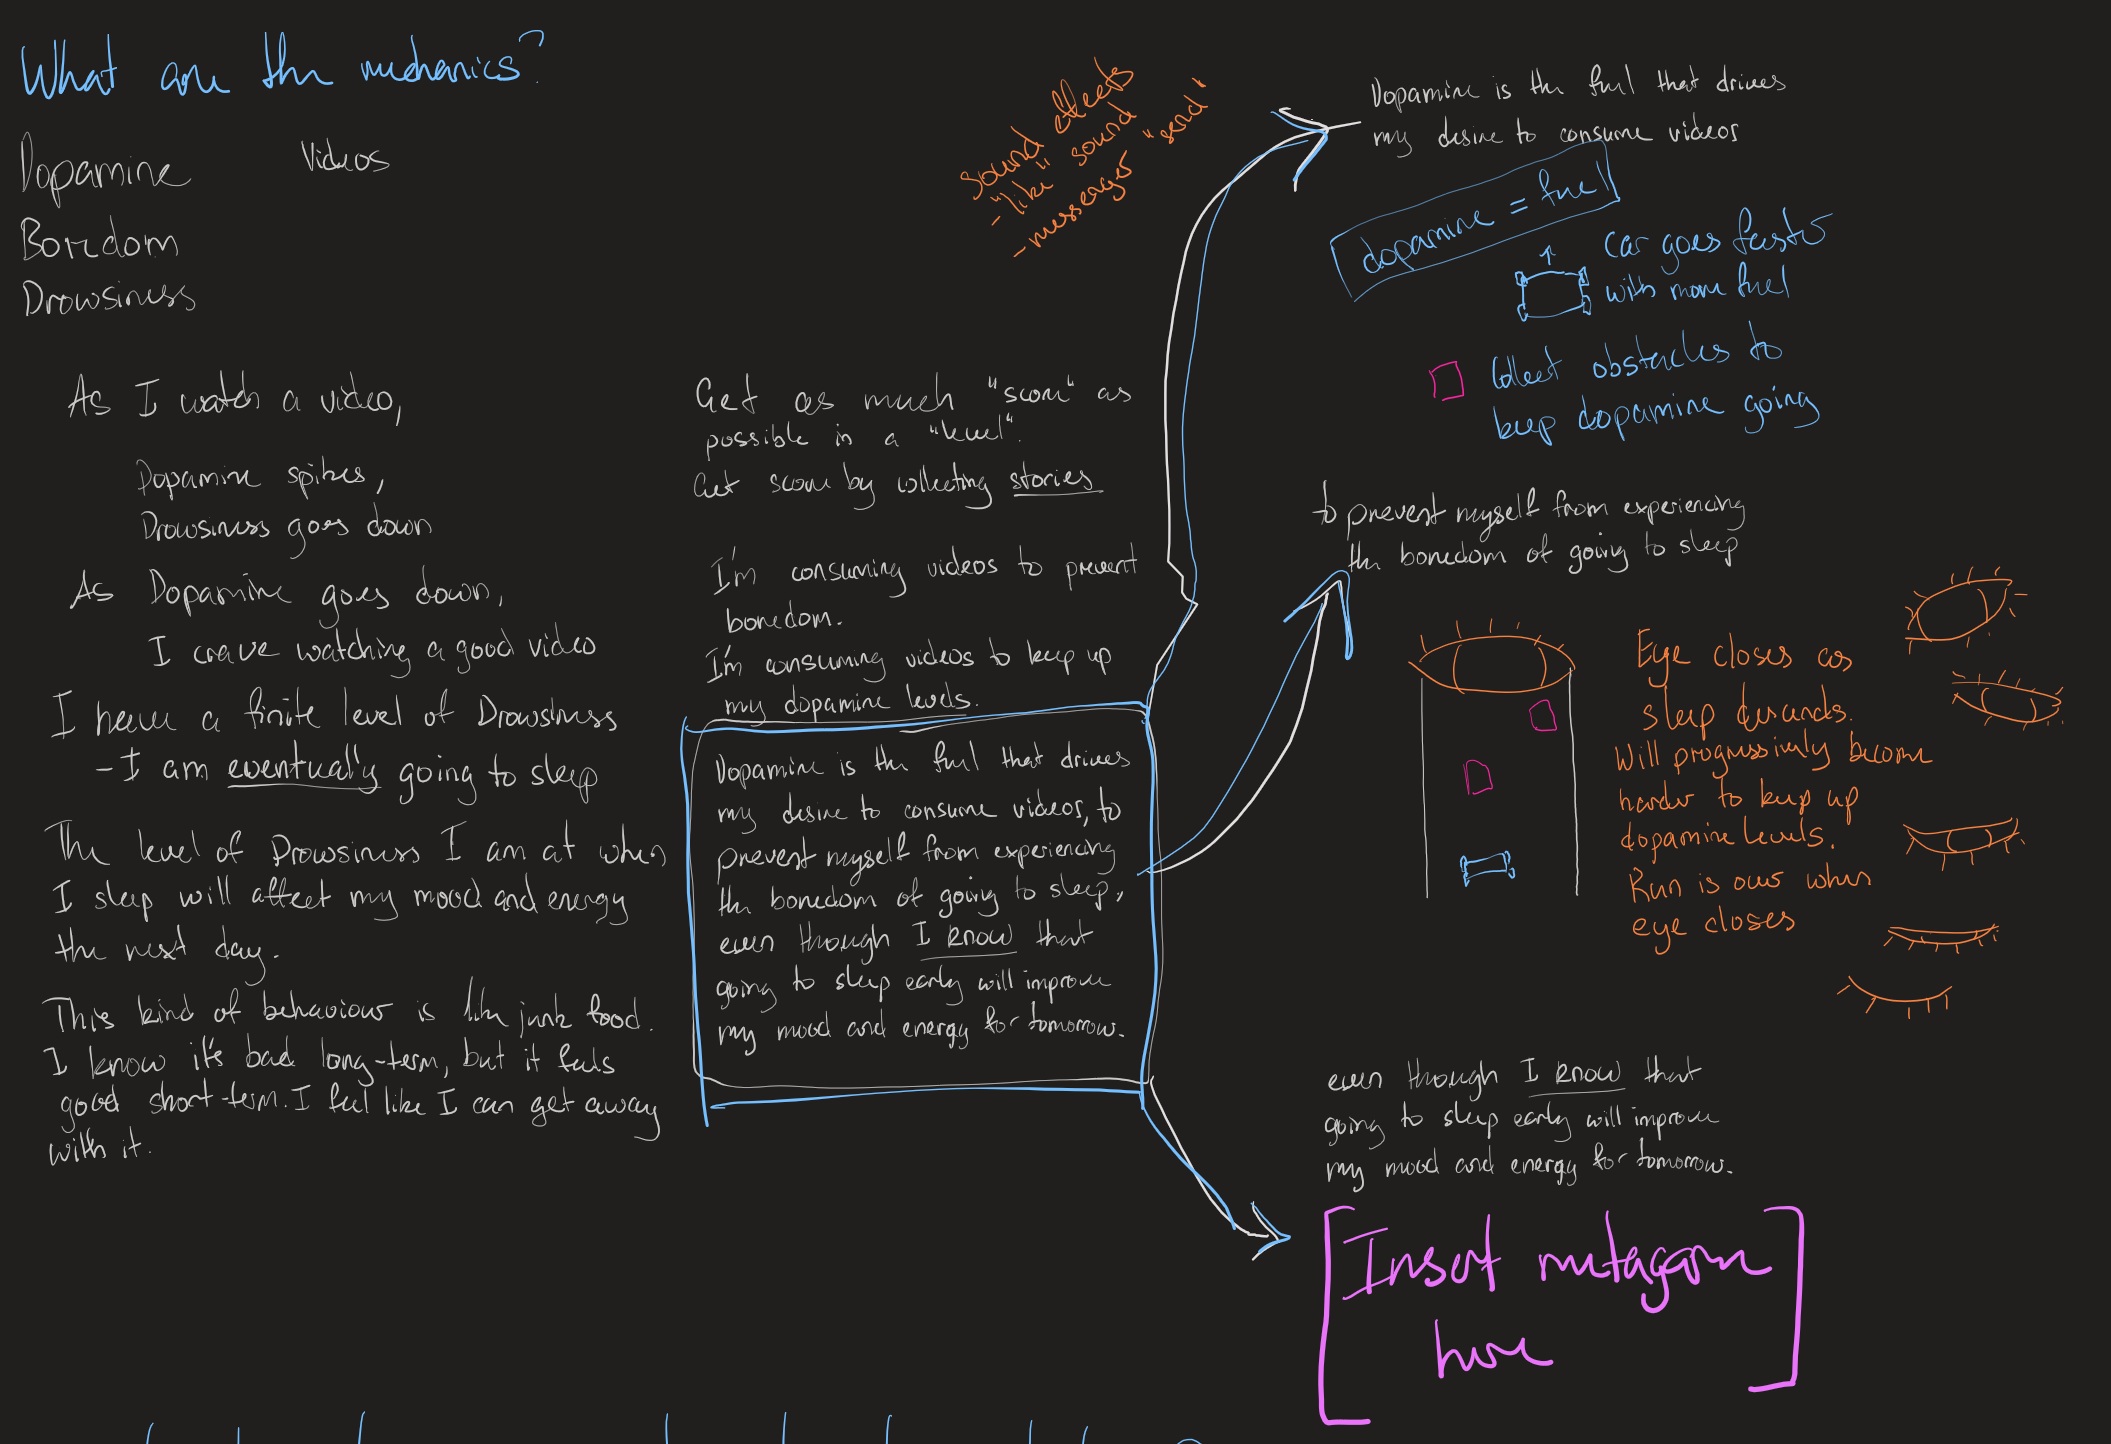 What are the mechanics?
Dopamine
Videos
Boredom
Drowsiness
As I watch a video,
Dopamine spikes,
Drowsiness goes down
As Dopamine goes down,
I crave watching a good video
I have a finite level of Drowsiness
- I am eventually going to sleep
The level of Drowsiness I am at when
I sleep will affect my mood and energy
the next day.
This kind of behaviour is like junk food.
I know it's bad long-term, but it feels
good short-term. I feel like I can get away
with it.
Get as much "score" as
possible in a "level".
Get score by collecting stories
I'm consuming videos to prevent
boredom.
I'm consuming videos to keep up
my dopamine levels.
Dopamine is the fuel that drives
my desire to consume videos, to
prevent myself from experiencing
the boredom of going to sleep,
even though I know that
going to sleep early will improve
my mood and energy for tomorrow.
Sound effects
- "like" sound
- messenger "send"
Dopamine is the fuel that drives
my desire to consume videos
dopamine = fuel
Car goes faster
with more fuel
Collect obstacles to
keep dopamine going
to prevent myself from experiencing
the boredom of going to sleep
Eye closes as
sleep descends.
Will progressively become
harder to keep up
dopamine levels.
Run is over when
eye closes
even though I know that
going to sleep early will improve
my mood and energy for tomorrow.
[Insert metagame
here]